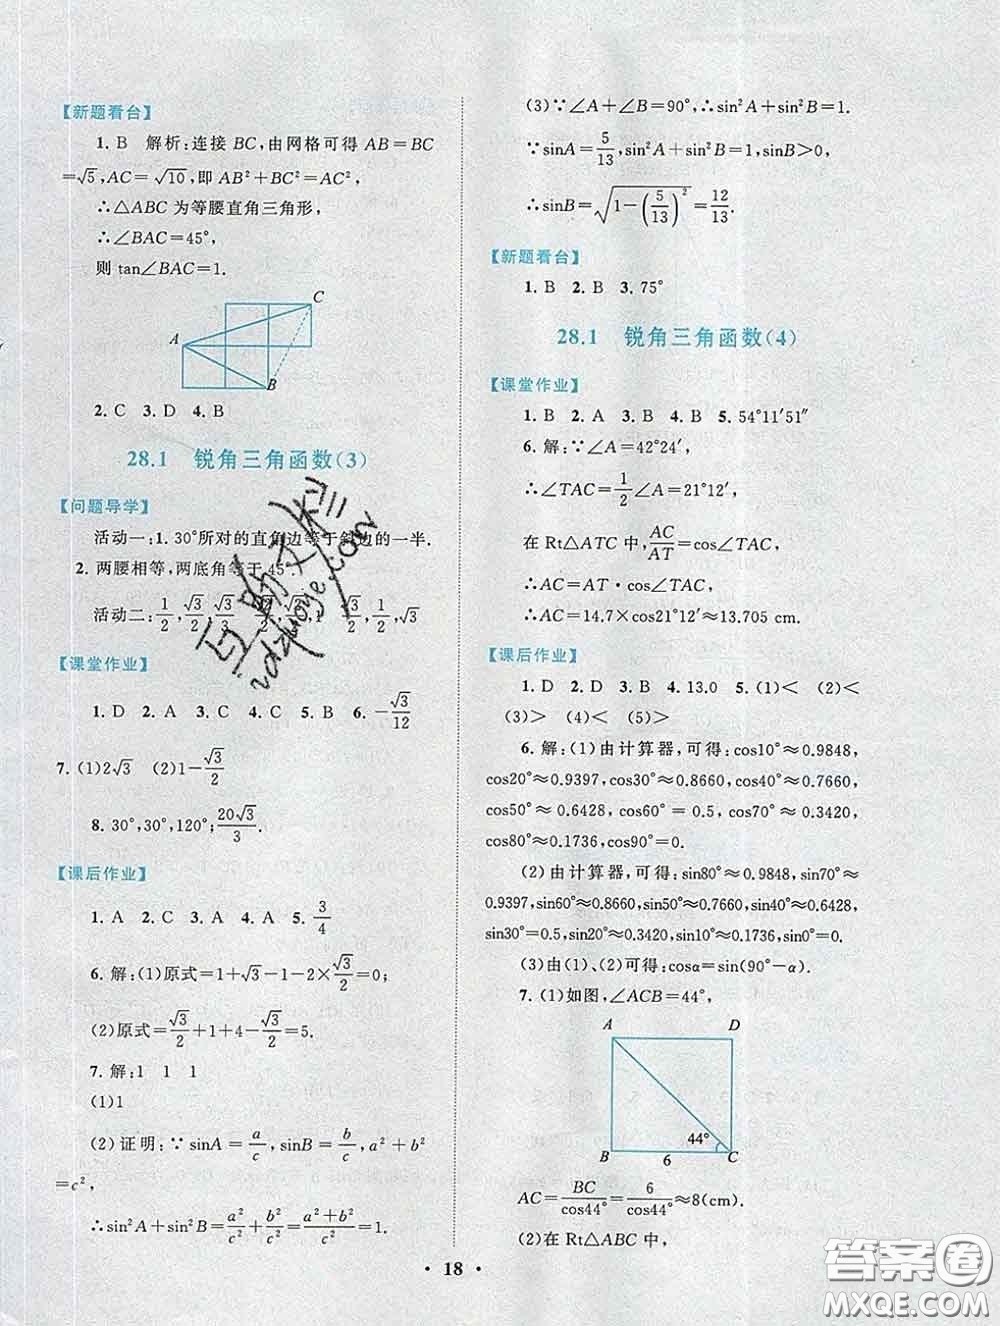 【新题看台】
1. B 解析:连接 BC,由网格可得 AB=BC
=√5,AC=√10,即 AB²+BC²=AC²,
∴△ABC 为等腰直角三角形,
∴∠BAC=45°,
则 tan∠BAC=1.
C
A
B
2. C 3. D 4. B
28.1 锐角三角函数(3)
【问题导学】
活动一:1. 30°所对的直角边等于斜边的一半.
2. 两腰相等,两底角等于45°
活动二:1/2,√3/2,√3/3 √2/2,√2/2,1 √3/2,1/2,√3
【课堂作业】
1. D 2. A 3. C 4. C 5. B 6. −√3/12
7. (1)2√3 (2)1−√3/2
8. 30°,30°,120°;20√3/3.
【课后作业】
1. A 2. C 3. A 4. A 5. 3/4
6. 解:(1)原式=1+√3−1−2×√3/2=0;
(2)原式=√3/2+1+4−√3/2=5.
7. 解:1 1 1
(1)1
(2)证明:∵sinA=a/c,sinB=b/c,a²+b²
=c²,
∴sin²A+sin²B=a²/c²+b²/c²=(a²+b²)/c²=1.
(3)∵∠A+∠B=90°,∴sin²A+sin²B=1.
∵sinA=5/13,sin²A+sin²B=1,sinB>0,
∴sinB=√(1−(5/13)²)=12/13.
【新题看台】
1. B 2. B 3. 75°
28.1 锐角三角函数(4)
【课堂作业】
1. B 2. A 3. B 4. B 5. 54°11′51″
6. 解:∵∠A=42°24′,
∴∠TAC=1/2∠A=21°12′,
在 Rt△ATC 中,AC/AT=cos∠TAC,
∴AC=AT·cos∠TAC,
∴AC=14.7×cos21°12′≈13.705 cm.
【课后作业】
1. D 2. D 3. B 4. 13.0 5. (1)< (2)<
(3)> (4)< (5)>
6. 解:(1)由计算器,可得:cos10°≈0.9848,
cos20°≈0.9397,cos30°≈0.8660,cos40°≈0.7660,
cos50°≈0.6428,cos60°=0.5,cos70°≈0.3420,
cos80°≈0.1736,cos90°=0.
(2)由计算器,可得:sin80°≈0.9848,sin70°≈
0.9397,sin60°≈0.8660,sin50°≈0.7660,sin40°≈0.6428,
sin30°=0.5,sin20°≈0.3420,sin10°≈0.1736,sin0°=0.
(3)由(1)、(2)可得:cosα=sin(90°−α).
7. (1)如图,∠ACB=44°,
A D
44°
B 6 C
AC=BC/cos44°=6/cos44°≈8(cm).
(2)在 Rt△ABC 中,
· 18 ·
答案圈
MXQE.COM